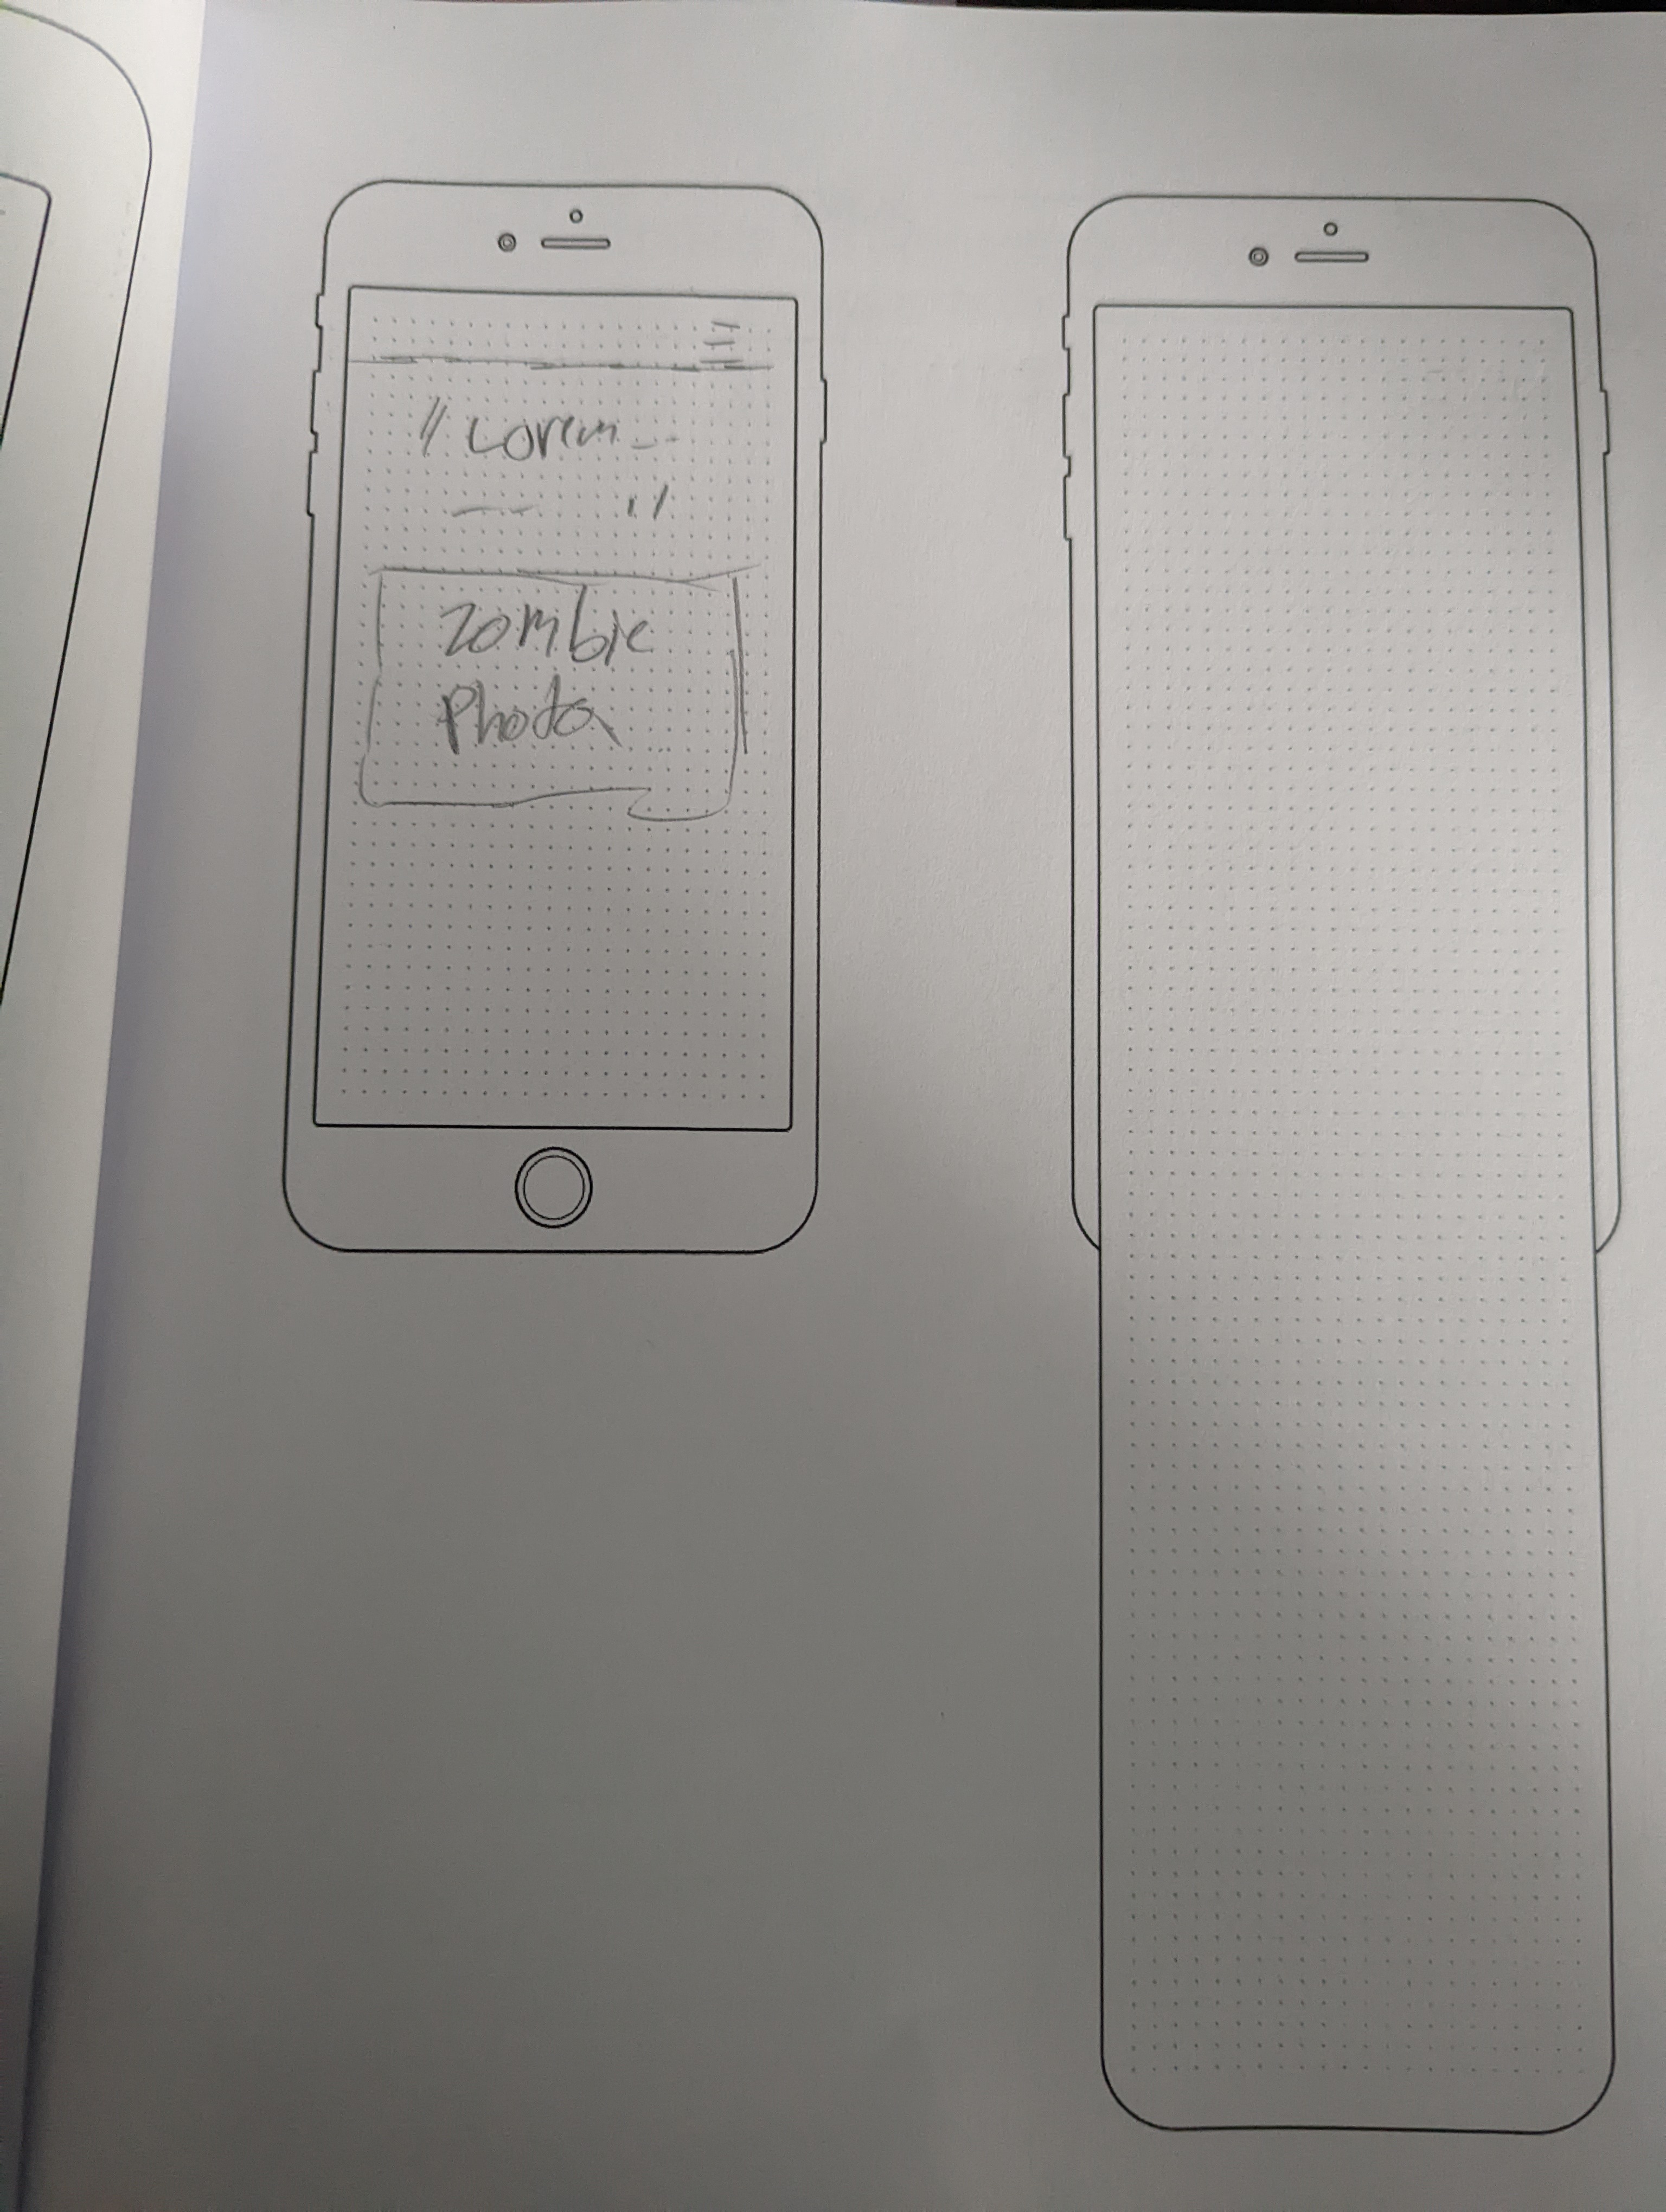 "Lorem --
-- "
Zombie
Photo